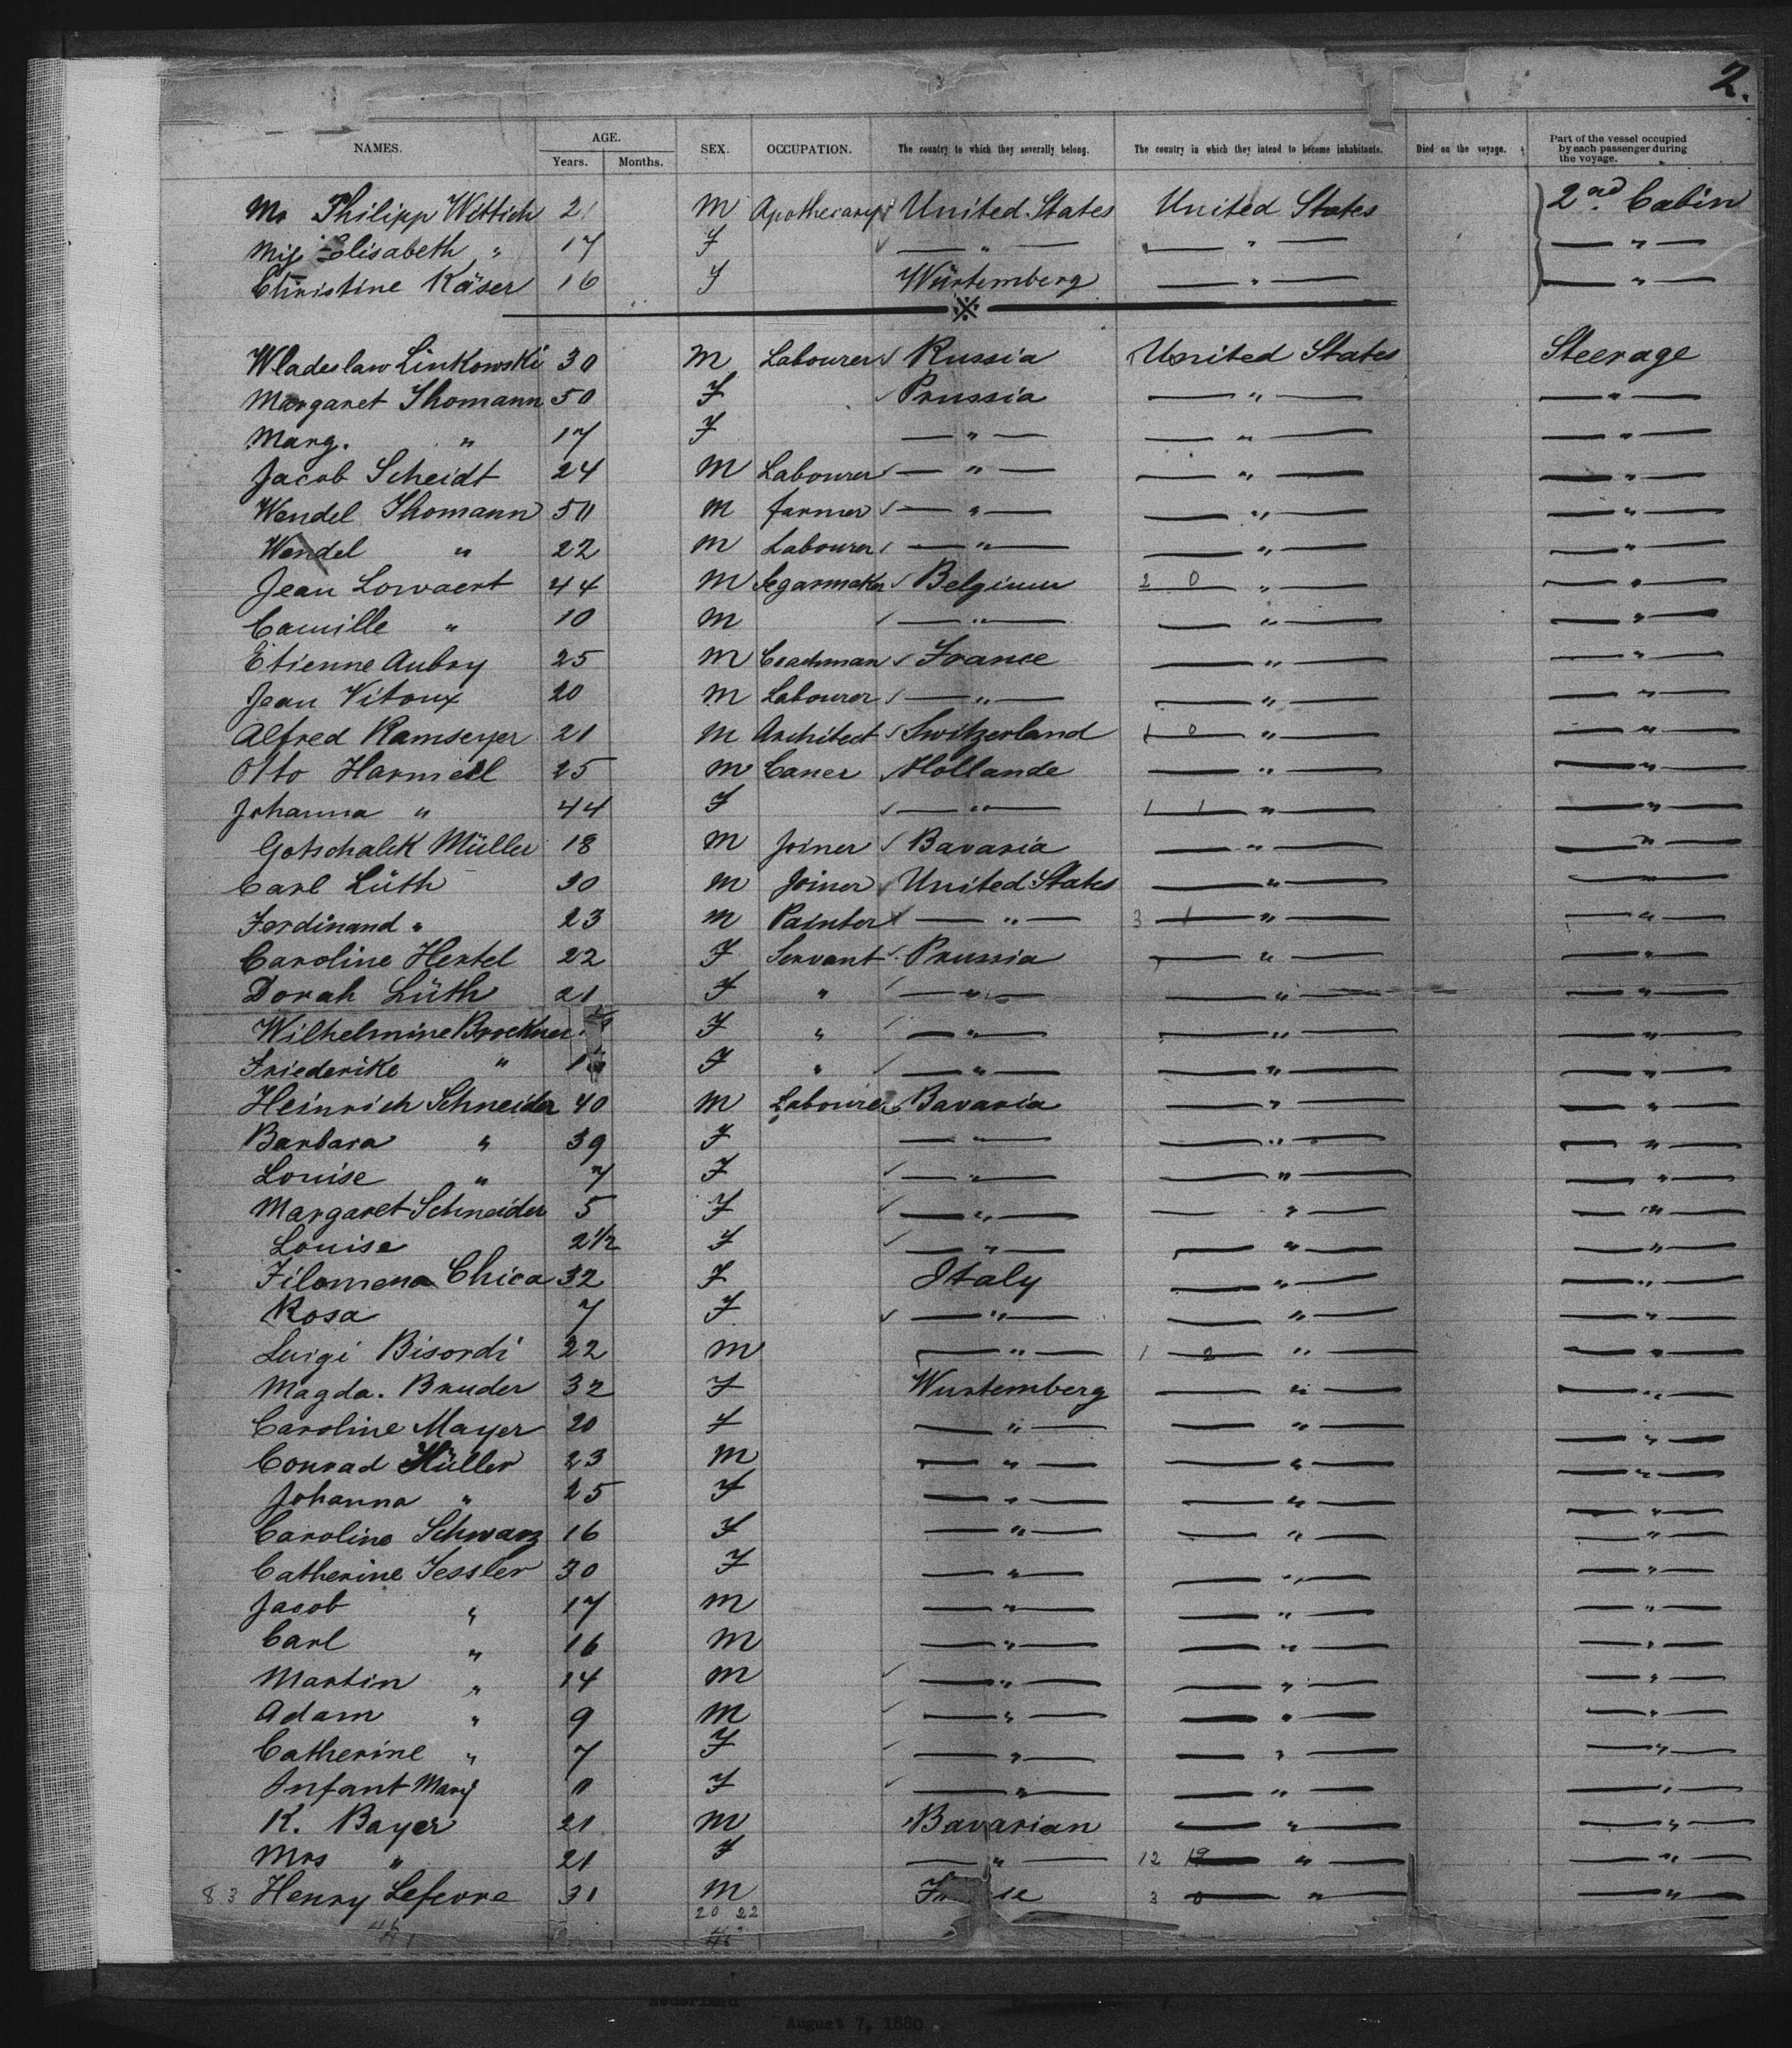 2.
NAMES. AGE. Years. Months. SEX. OCCUPATION. The country to which they severally belong. The country in which they intend to become inhabitants. Died on the voyage. Part of the vessel occupied by each passenger during the voyage.
Mr Philipp Wittich 21 M Apothecary United States United States 2nd Cabin
Miss Elisabeth " 17 F " " "
Christine Käser 16 F Würtemberg " "
Wladeslaw Linkowski 30 M Labourer Russia United States Steerage
Margaret Thomann 50 F Prussia " "
Marg. " 17 F " " "
Jacob Scheidt 24 M Labourer " " "
Wendel Thomann 50 M farmer " " "
Wendel " 22 M Labourer " " "
Jean Lowaert 44 M Segarmaker Belgium 2 0 " "
Camille " 10 M " " "
Etienne Aubry 25 M Coachman France " "
Jean Vitoux 20 M Labourer " " "
Alfred Ramseyer 21 M Architect Switzerland 1 0 " "
Otto Harmell 25 M Caner Hollande " "
Johanna " 44 F " 1 1 " "
Gotschalck Müller 18 M Joiner Bavaria " "
Carl Lüth 30 M Joiner United States " "
Ferdinand " 23 M Painter " 3 1 " "
Caroline Hertel 22 F Servant Prussia " "
Dorah Lüth 21 F " " " "
Wilhelmine Brockner F " " " "
Friederike " F " " " "
Heinrich Schneider 40 M Labourer Bavaria " "
Barbara " 39 F " " "
Louise " 7 F " " "
Margaret Schneider 5 F " " "
Louise 2 1/2 F " " "
Filomena Chica 32 F Italy " "
Rosa 7 F " " "
Luigi Bisordi 22 M " 1 2 " "
Magda. Bruder 32 F Wurtemberg " "
Caroline Mayer 20 F " " "
Conrad Müller 23 M " " "
Johanna " 25 F " " "
Caroline Schwarz 16 F " " "
Catherine Tessler 30 F " " "
Jacob " 17 M " " "
Carl " 16 M " " "
Martin " 14 M " " "
Adam " 9 M " " "
Catherine " 7 F " " "
Infant Mary 11 F " " "
K. Bayer 21 M Bavarian " "
Mrs " 21 F " 12 19 " "
83 Henry Lefevre 31 M 3 0 " "
20 22
August 7, 1880